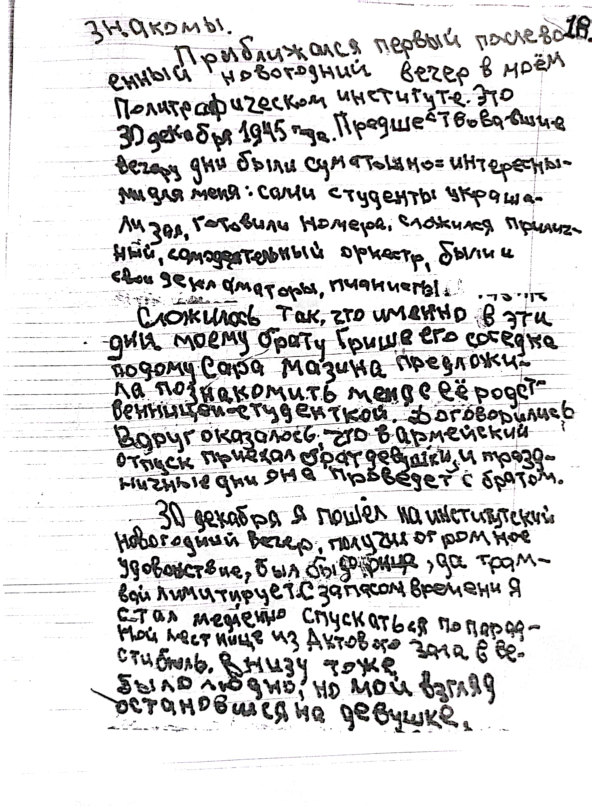 18.
знакомы.
Приближался первый послево
енный новогодний вечер в моём
Полиграфическом институте. Это
30 декабря 1945 года. Предшествовавшие
вечеру дни были суматошно=интересны-
ми для меня: сами студенты украша-
ли зал, готовили номера, сложился прилич-
ный, самодеятельный оркестр, были и
свои декламаторы, пианисты.
Сложилось так, что именно в эти
дни моему брату Грише его соседка
по дому Сара Мазина предложи-
ла познакомить меня с её родст-
венницей-студенткой. Договорились
Вдруг оказалось, что в армейский
отпуск приехал брат девушки, и празд-
ничные дни она проведет с братом.
30 декабря я пошёл на институтский
новогодний вечер, получил огромное
удовольствие, был бы до конца, да трам-
вай лимитирует. С запасом времени я
стал медленно спускаться по парад-
ной лестнице из Актового зала в ве-
стибюль. Внизу тоже
было людно, но мой взгляд
остановился на девушке,